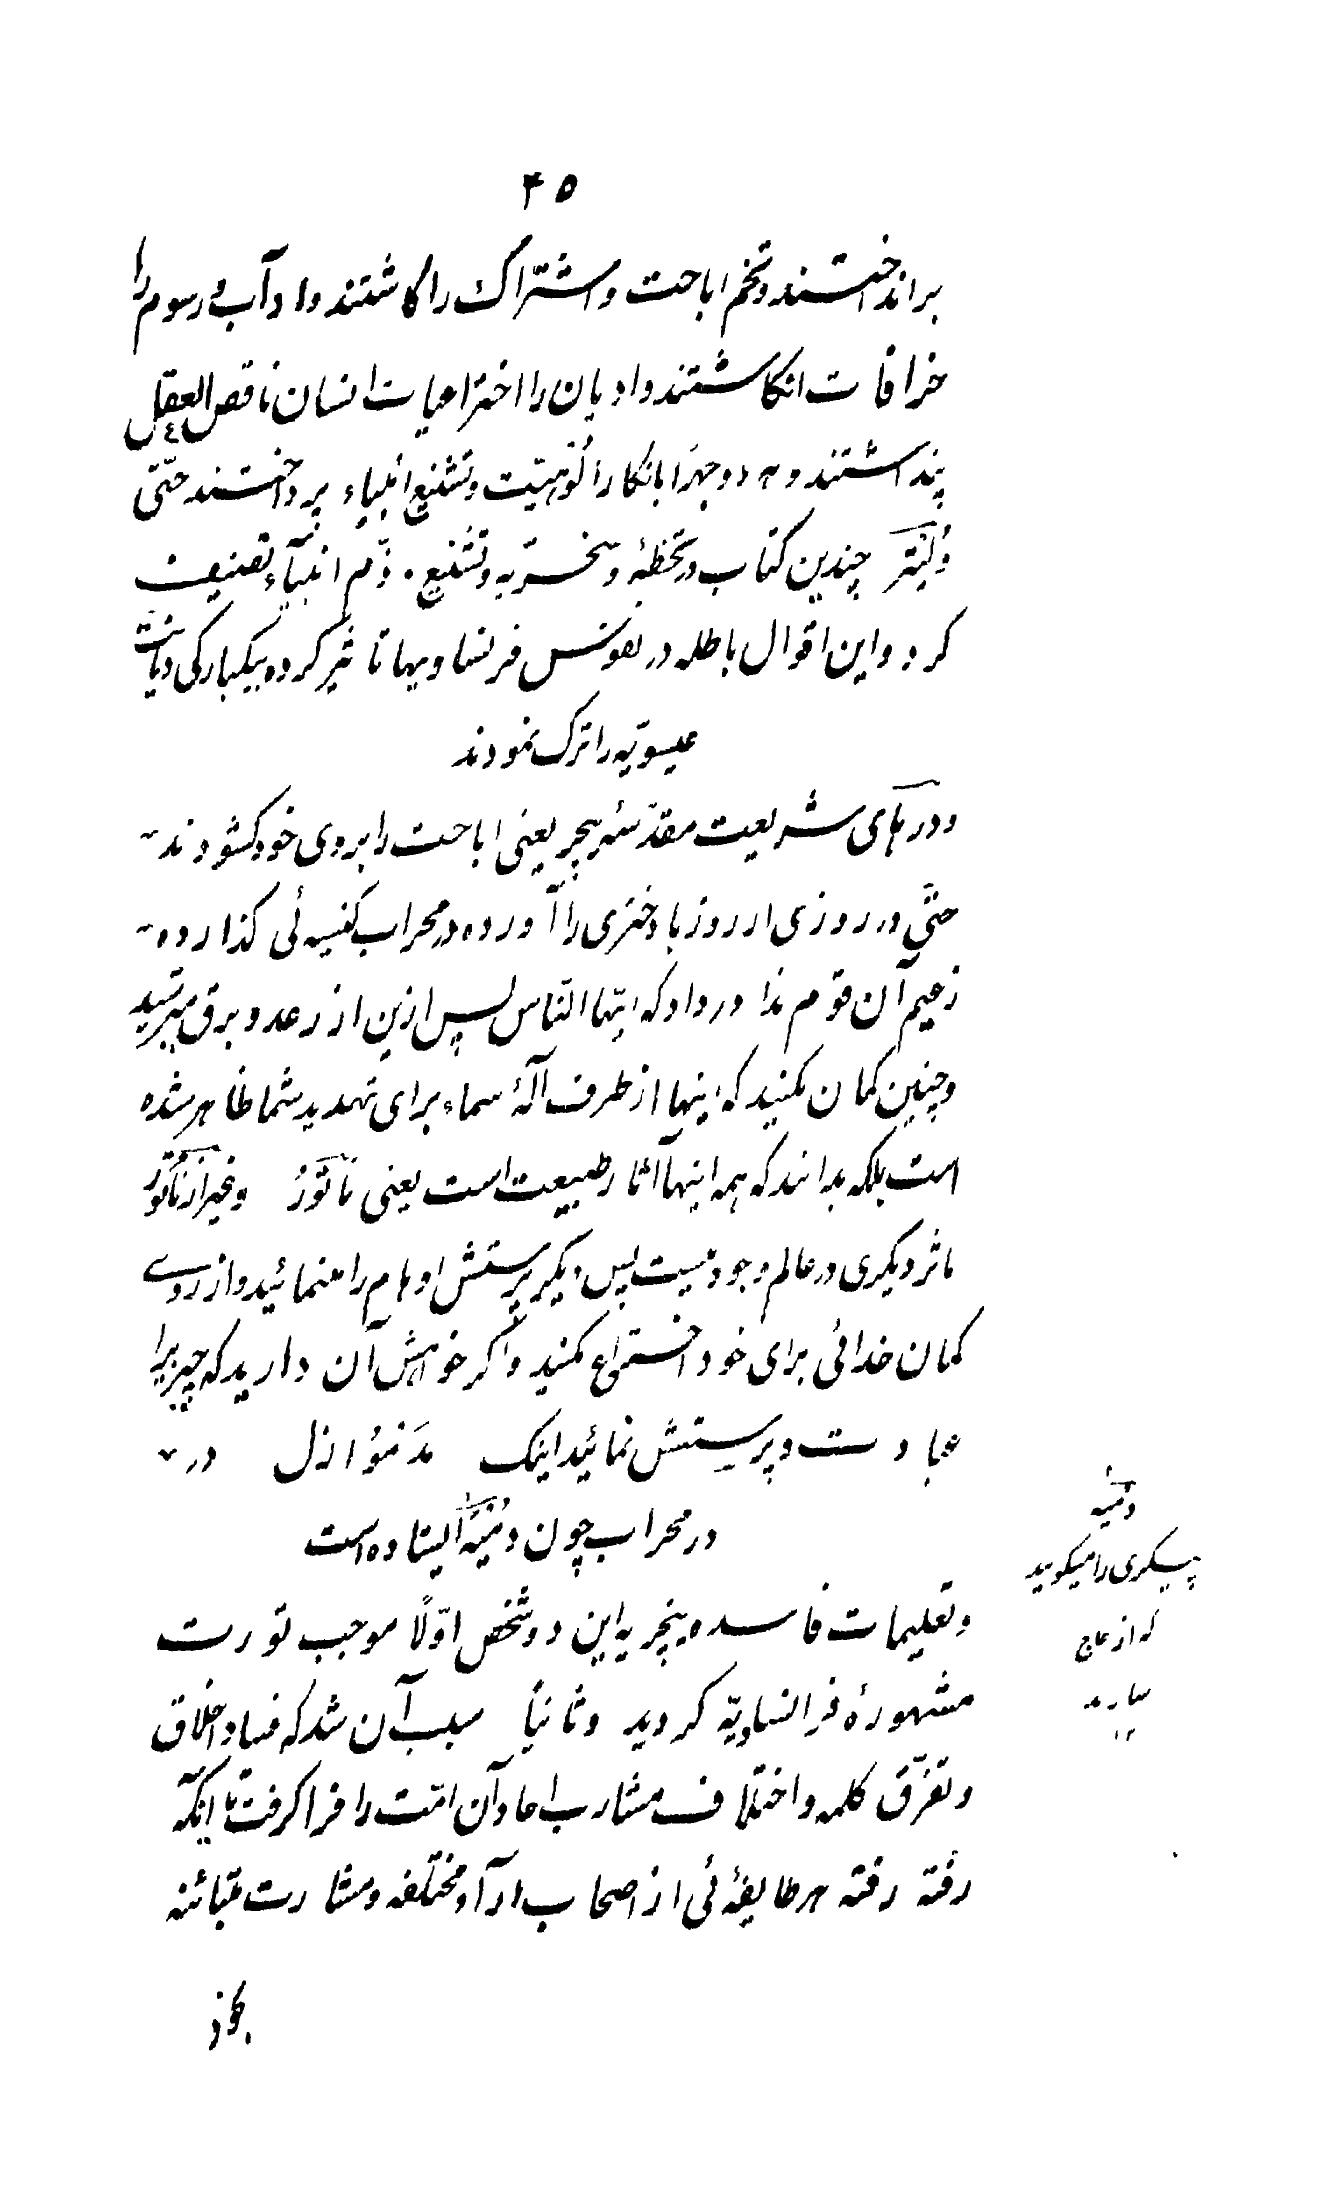 ۴۵
برانداختند و تخم اباحت و اشتراک را کاشتند و اداب و رسوم را
خرافات انکاشتند و ادیان را اختراعیات انسان ناقص العقل
پنداشتند و هر دو جهرًا بانکار الوهیّت و تشنیع انبیاء پرداختند حتّی
وُلتِر چندین کتاب در تخطئهٔ و سخریه و تشنیع و ذّم انبیآء تصنیف
کرد و این اقوال باطله در نفوس فرنساویها تاثیر کرده بیکبارکی دیانت
عیسویّه را ترک نمودند
و درهای شریعت مقدّسهٔ نیچر یعنی اباحت را بروی خود کشودند
حتّی در روزی از روزها دختری را آورده در محراب کنیسه ئی کذارده
زعیم آن قوم ندا در داد که ایّها النّاس پس ازین از رعد و برق مترسید
و چنین کمان مکنید که اینها از طرف آلهٔ سماء برای تهدید شما ظاهر شده
است بلکه بدانند که همه اینها آثار طبیعت است یعنی ناتور و غیر از ناتور
ماثر دیکری در عالم وجود نیست پس دیکر پرستش اوهام را منمائید و از روی
کمان خدائی برای خود اختراع مکنید و اکر خواهش آن دارید که چیزیرا
عبادت و پرستش نمائید اینک مَدْمُوازل در
در محراب چون دُمْیَه ایستاده است
دمیه
پیکری را میکویند
که از عاج
سازند
۱۲
و تعلیمات فاسده نیچریه این دو شخص اوّلًا موجب ثورت
مشهورهٔ فرانساویّه کردید و ثانیًا سبب آن شد که فساد اخلاق
و تفرّق کلمه و اختلاف مشارب احاد آن امّت را فرا کرفت تا انکه
رفته رفته هر طایفهٔ ئی از اصحاب ارآء مختلفه و مشارب متبائنه
بخود